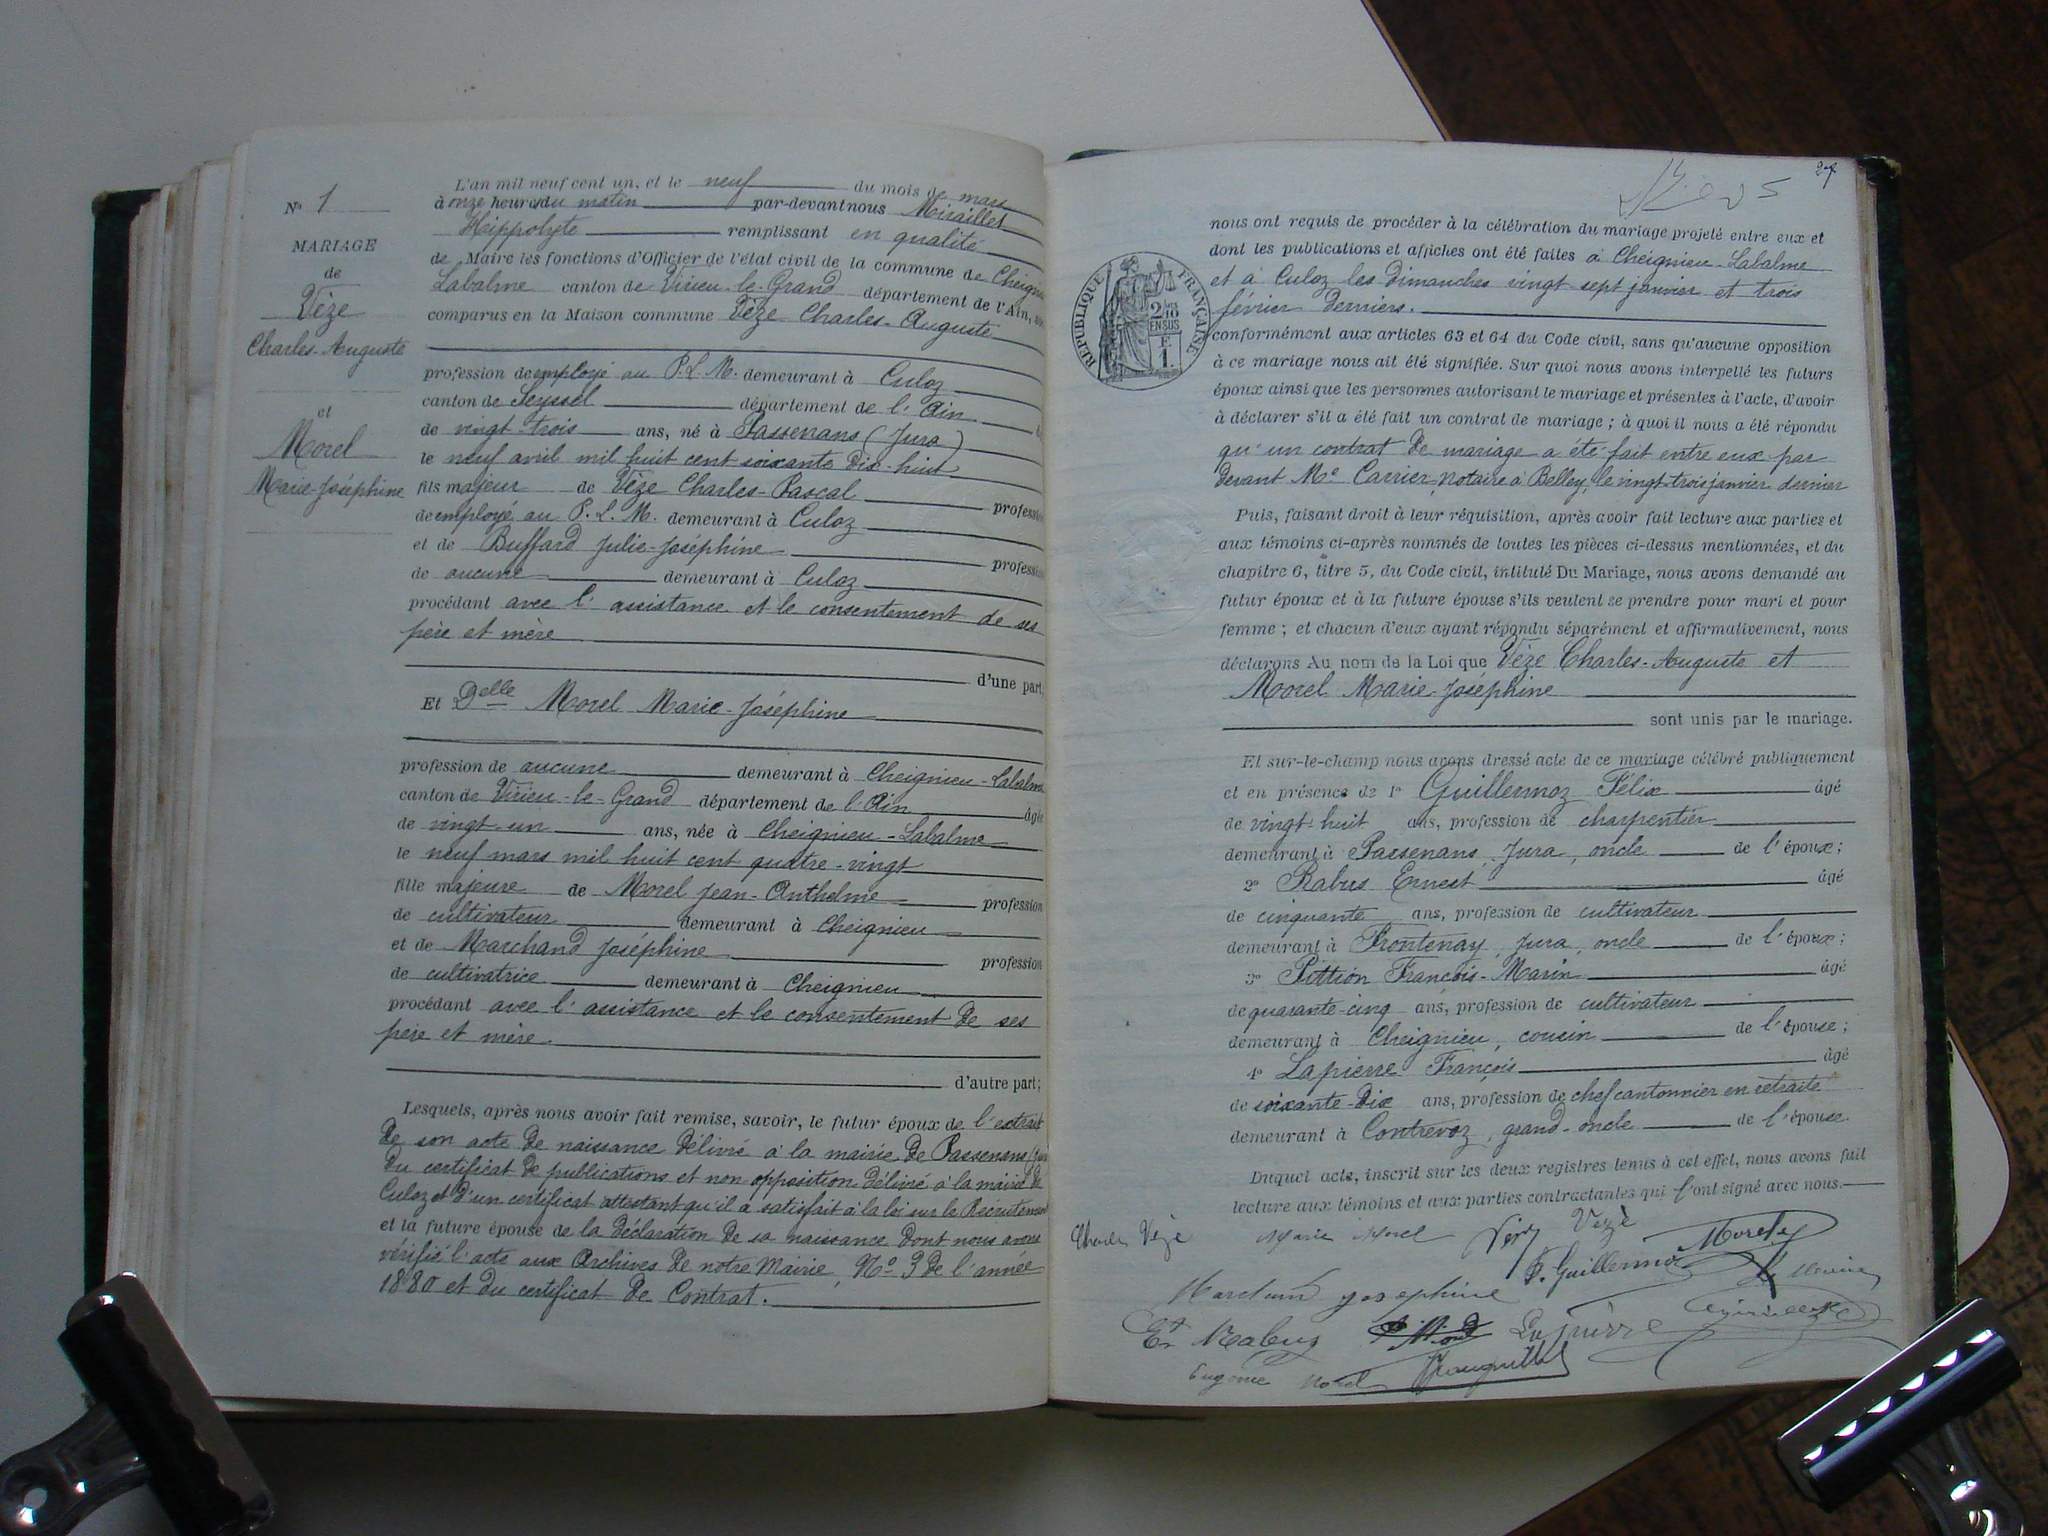 N° 1
MARIAGE
de
Vèze
Charles-Auguste
et
Morel
Marie-Joséphine
L'an mil neuf cent un, et le neuf du mois de mars
à onze heures du matin par-devant nous Miraillet
Hippolyte remplissant en qualité
de Maire les fonctions d'Officier de l'état civil de la commune de Cheignieu
Labalme canton de Virieu-le-Grand département de l'Ain,
comparus en la Maison commune Vèze Charles-Auguste
profession de employé au P.L.M. demeurant à Culoz
canton de Seyssel département de l'Ain
de vingt-trois ans, né à Passenans (Jura)
le neuf avril mil huit cent soixante dix-huit
fils majeur de Vèze Charles-Pascal profession
de employé au P.L.M. demeurant à Culoz
et de Buffard Julie-Joséphine profession
de aucune demeurant à Culoz
procédant avec l'assistance et le consentement de ses
père et mère
d'une part.
Et Delle Morel Marie-Joséphine
profession de aucune demeurant à Cheignieu-Labalme
canton de Virieu-le-Grand département de l'Ain âgée
de vingt-un ans, née à Cheignieu-Labalme
le neuf mars mil huit cent quatre-vingt
fille majeure de Morel Jean-Anthelme profession
de cultivateur demeurant à Cheignieu
et de Marchand Joséphine profession
de cultivatrice demeurant à Cheignieu
procédant avec l'assistance et le consentement de ses
père et mère.
d'autre part;
Lesquels, après nous avoir fait remise, savoir, le futur époux de l'extrait
de son acte de naissance délivré à la mairie de Passenans (Jura
du certificat de publications et non opposition délivré à la mairie de
Culoz et d'un certificat attestant qu'il a satisfait à la loi sur le Recrutement
et la future épouse de la déclaration de sa naissance dont nous avons
vérifié l'acte aux Archives de notre Mairie, N° 3 de l'année
1880 et du certificat de Contrat.
27
RÉPUBLIQUE FRANÇAISE
2/10
EN SUS
F.
1.
nous ont requis de procéder à la célébration du mariage projeté entre eux et
dont les publications et affiches ont été faites à Cheignieu-Labalme
et à Culoz les Dimanches vingt-sept janvier et trois
février derniers.
conformément aux articles 63 et 64 du Code civil, sans qu'aucune opposition
à ce mariage nous ait été signifiée. Sur quoi nous avons interpellé les futurs
époux ainsi que les personnes autorisant le mariage et présentes à l'acte, d'avoir
à déclarer s'il a été fait un contrat de mariage; à quoi il nous a été répondu
qu'un contrat de mariage a été fait entre eux par
devant Me Carrier, notaire à Belley, le vingt-trois janvier dernier
Puis, faisant droit à leur réquisition, après avoir fait lecture aux parties et
aux témoins ci-après nommés de toutes les pièces ci-dessus mentionnées, et du
chapitre 6, titre 5, du Code civil, intitulé Du Mariage, nous avons demandé au
futur époux et à la future épouse s'ils veulent se prendre pour mari et pour
femme; et chacun d'eux ayant répondu séparément et affirmativement, nous
déclarons Au nom de la Loi que Vèze Charles-Auguste et
Morel Marie-Joséphine
sont unis par le mariage.
Et sur-le-champ nous avons dressé acte de ce mariage célébré publiquement
et en présence de 1° Guillermoz Félix âgé
de vingt-huit ans, profession de charpentier
demeurant à Passenans, Jura, oncle de l'époux;
2° Rabus Ernest âgé
de cinquante ans, profession de cultivateur
demeurant à Frontenay, Jura, oncle de l'époux;
3° Pittion François-Marin âgé
de quarante-cinq ans, profession de cultivateur
demeurant à Cheignieu, cousin de l'épouse;
4° Lapierre François âgé
de soixante-dix ans, profession de chef cantonnier en retraite
demeurant à Contrevoz, grand-oncle de l'épouse.
Duquel acte, inscrit sur les deux registres tenus à cet effet, nous avons fait
lecture aux témoins et aux parties contractantes qui l'ont signé avec nous.
Charles Vèze Marie Morel Vèze Morel
F. Guillermoz
Marchand Josephine
Et Rabus Lapierre
Eugenie Morel